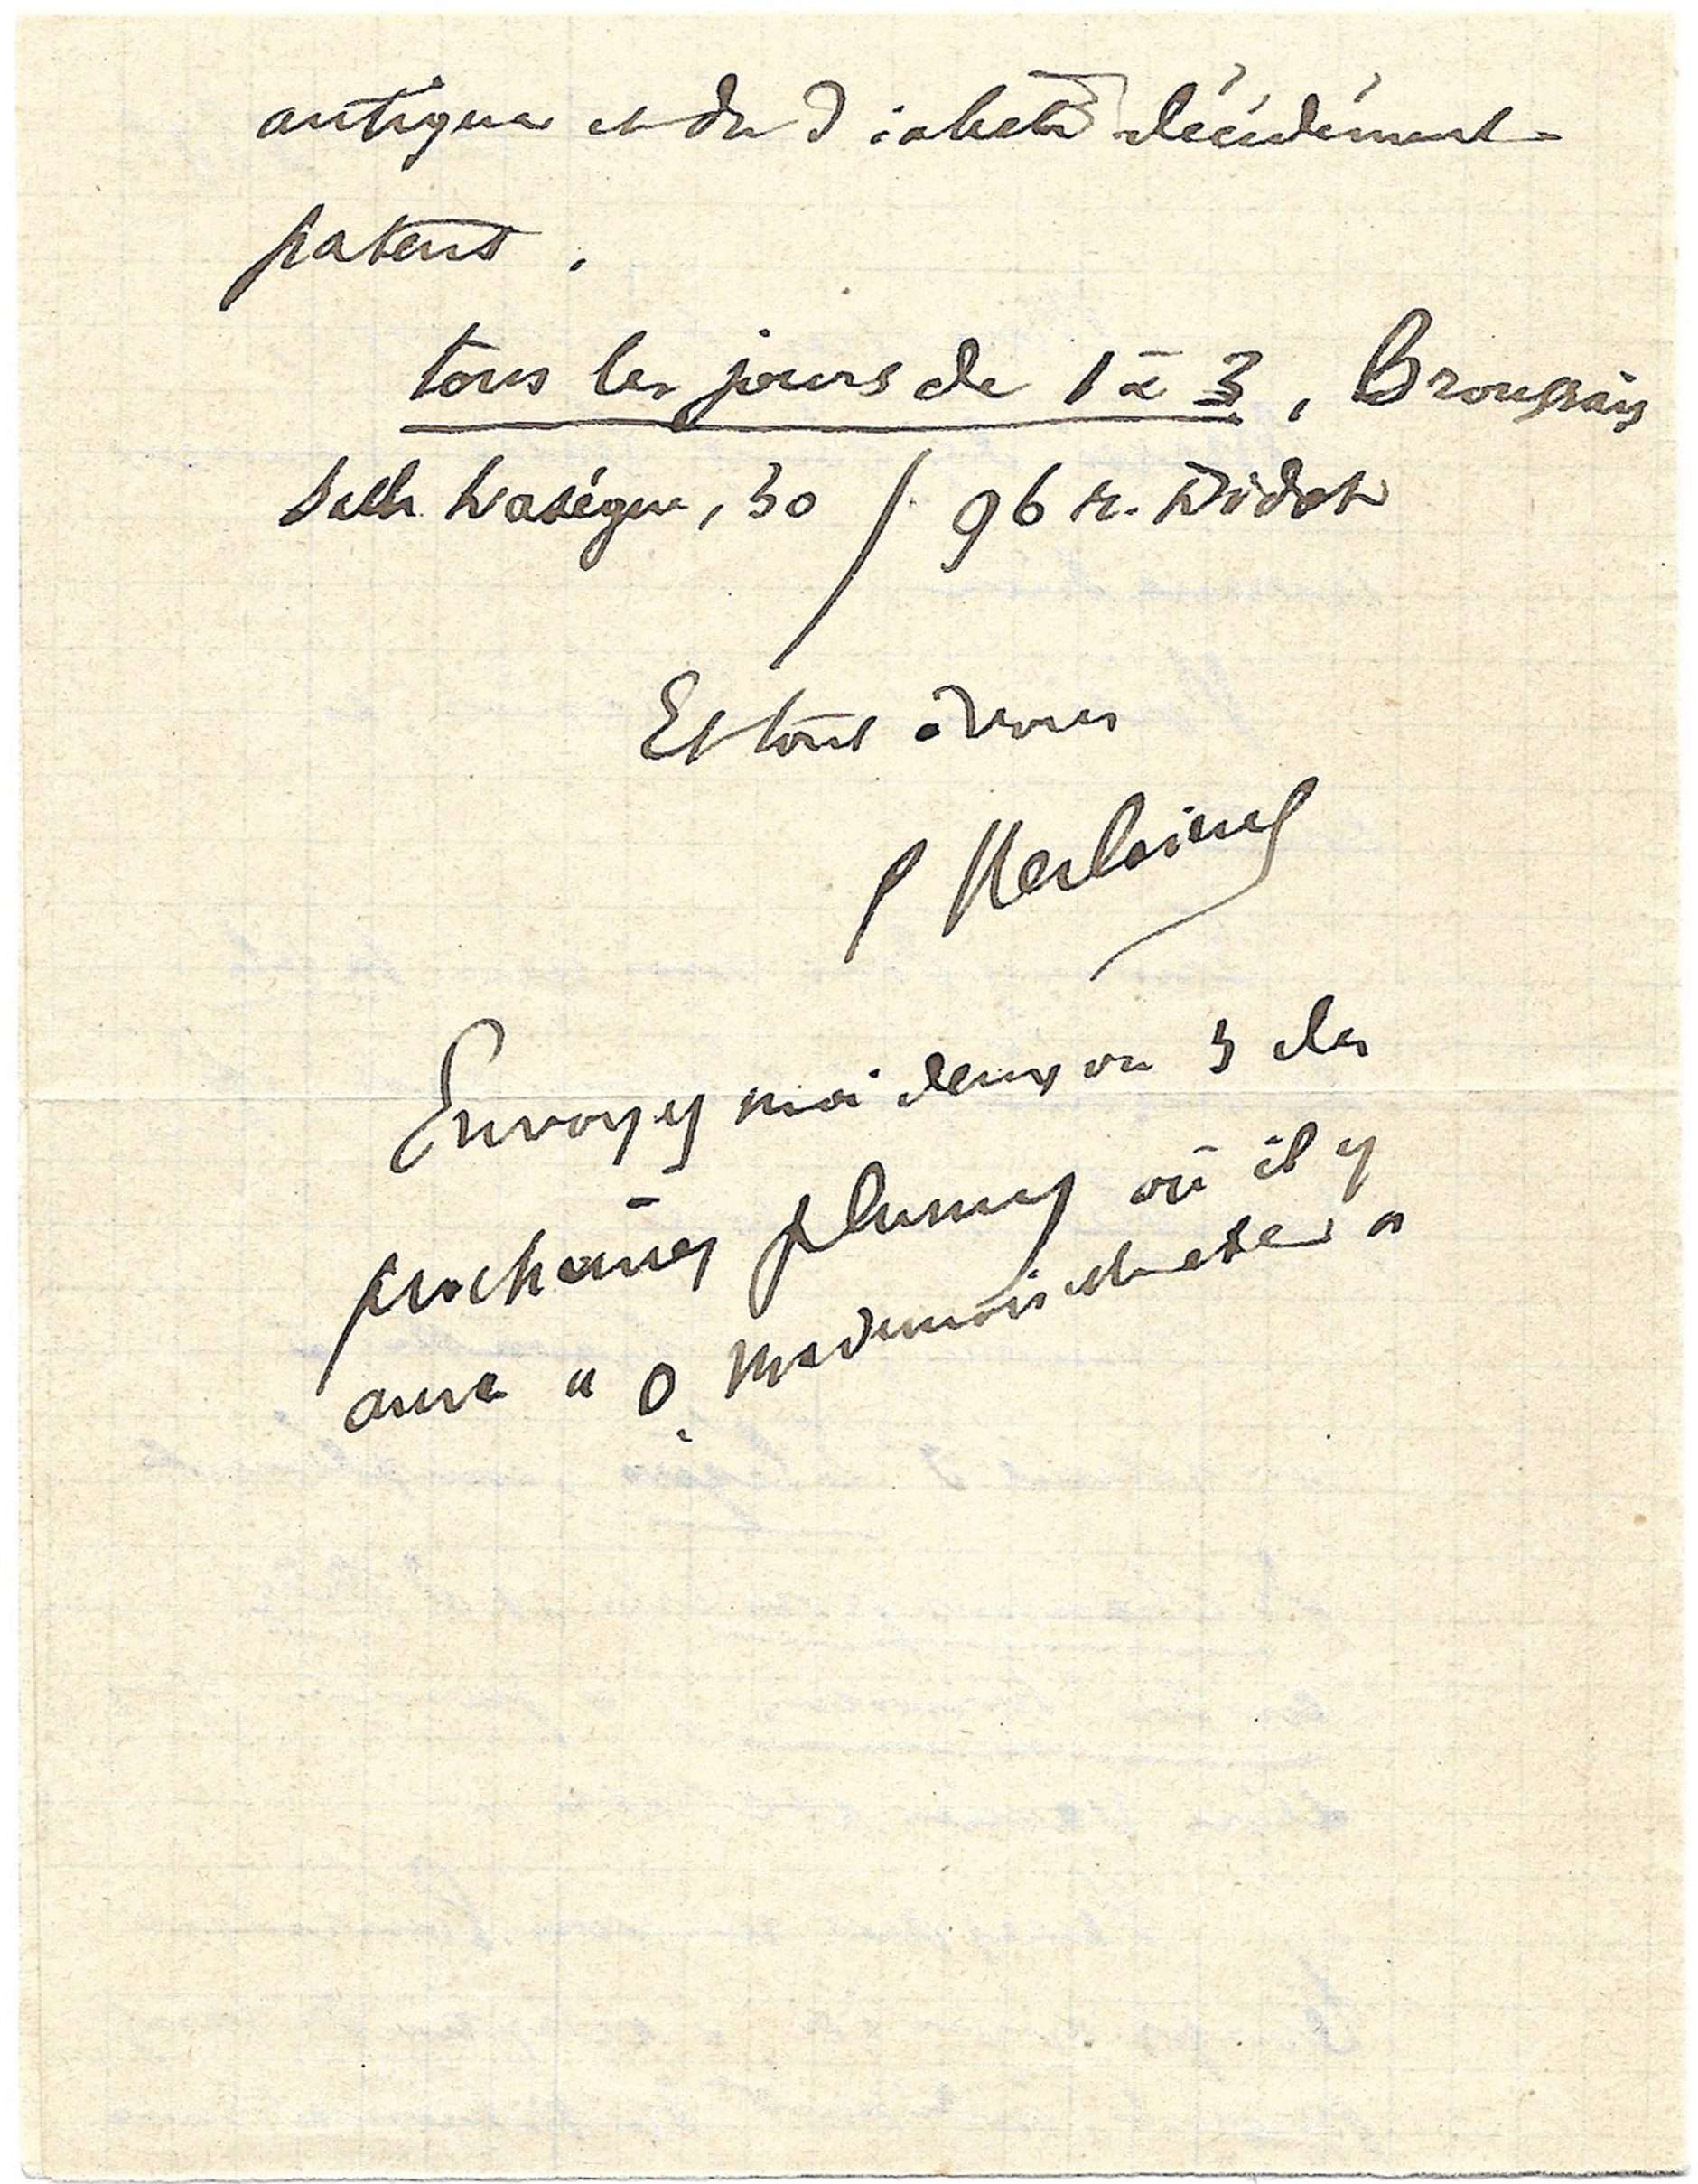 antiques et du Diabète décidément
patent.
tous les jours de 1 à 3, Broussais
Salle Lasègue, 30 / 96 r. Didot
Et tout à vous
P Verlaine
Envoyez moi deux ou 3 des
prochaines plumes où il y
aura " O, Mademoiselle "